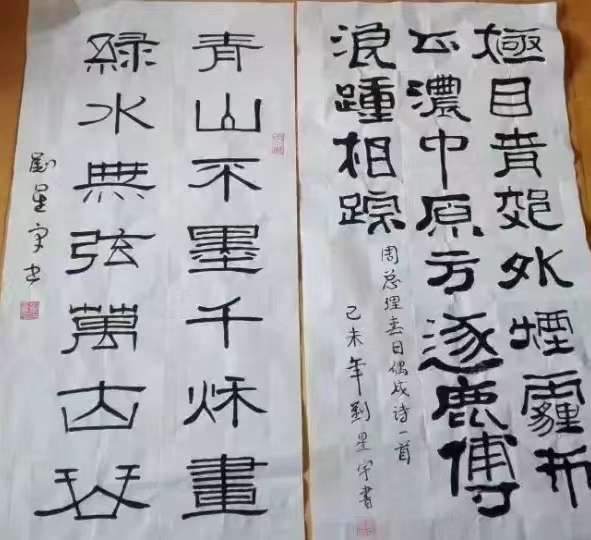 極目青郊外煙霾布
正濃中原方逐鹿博
浪踵相踪
周总理春日偶成诗一首
己未年劉星宇書
青山不墨千秋畫
緑水無弦萬古琴
劉星宇书